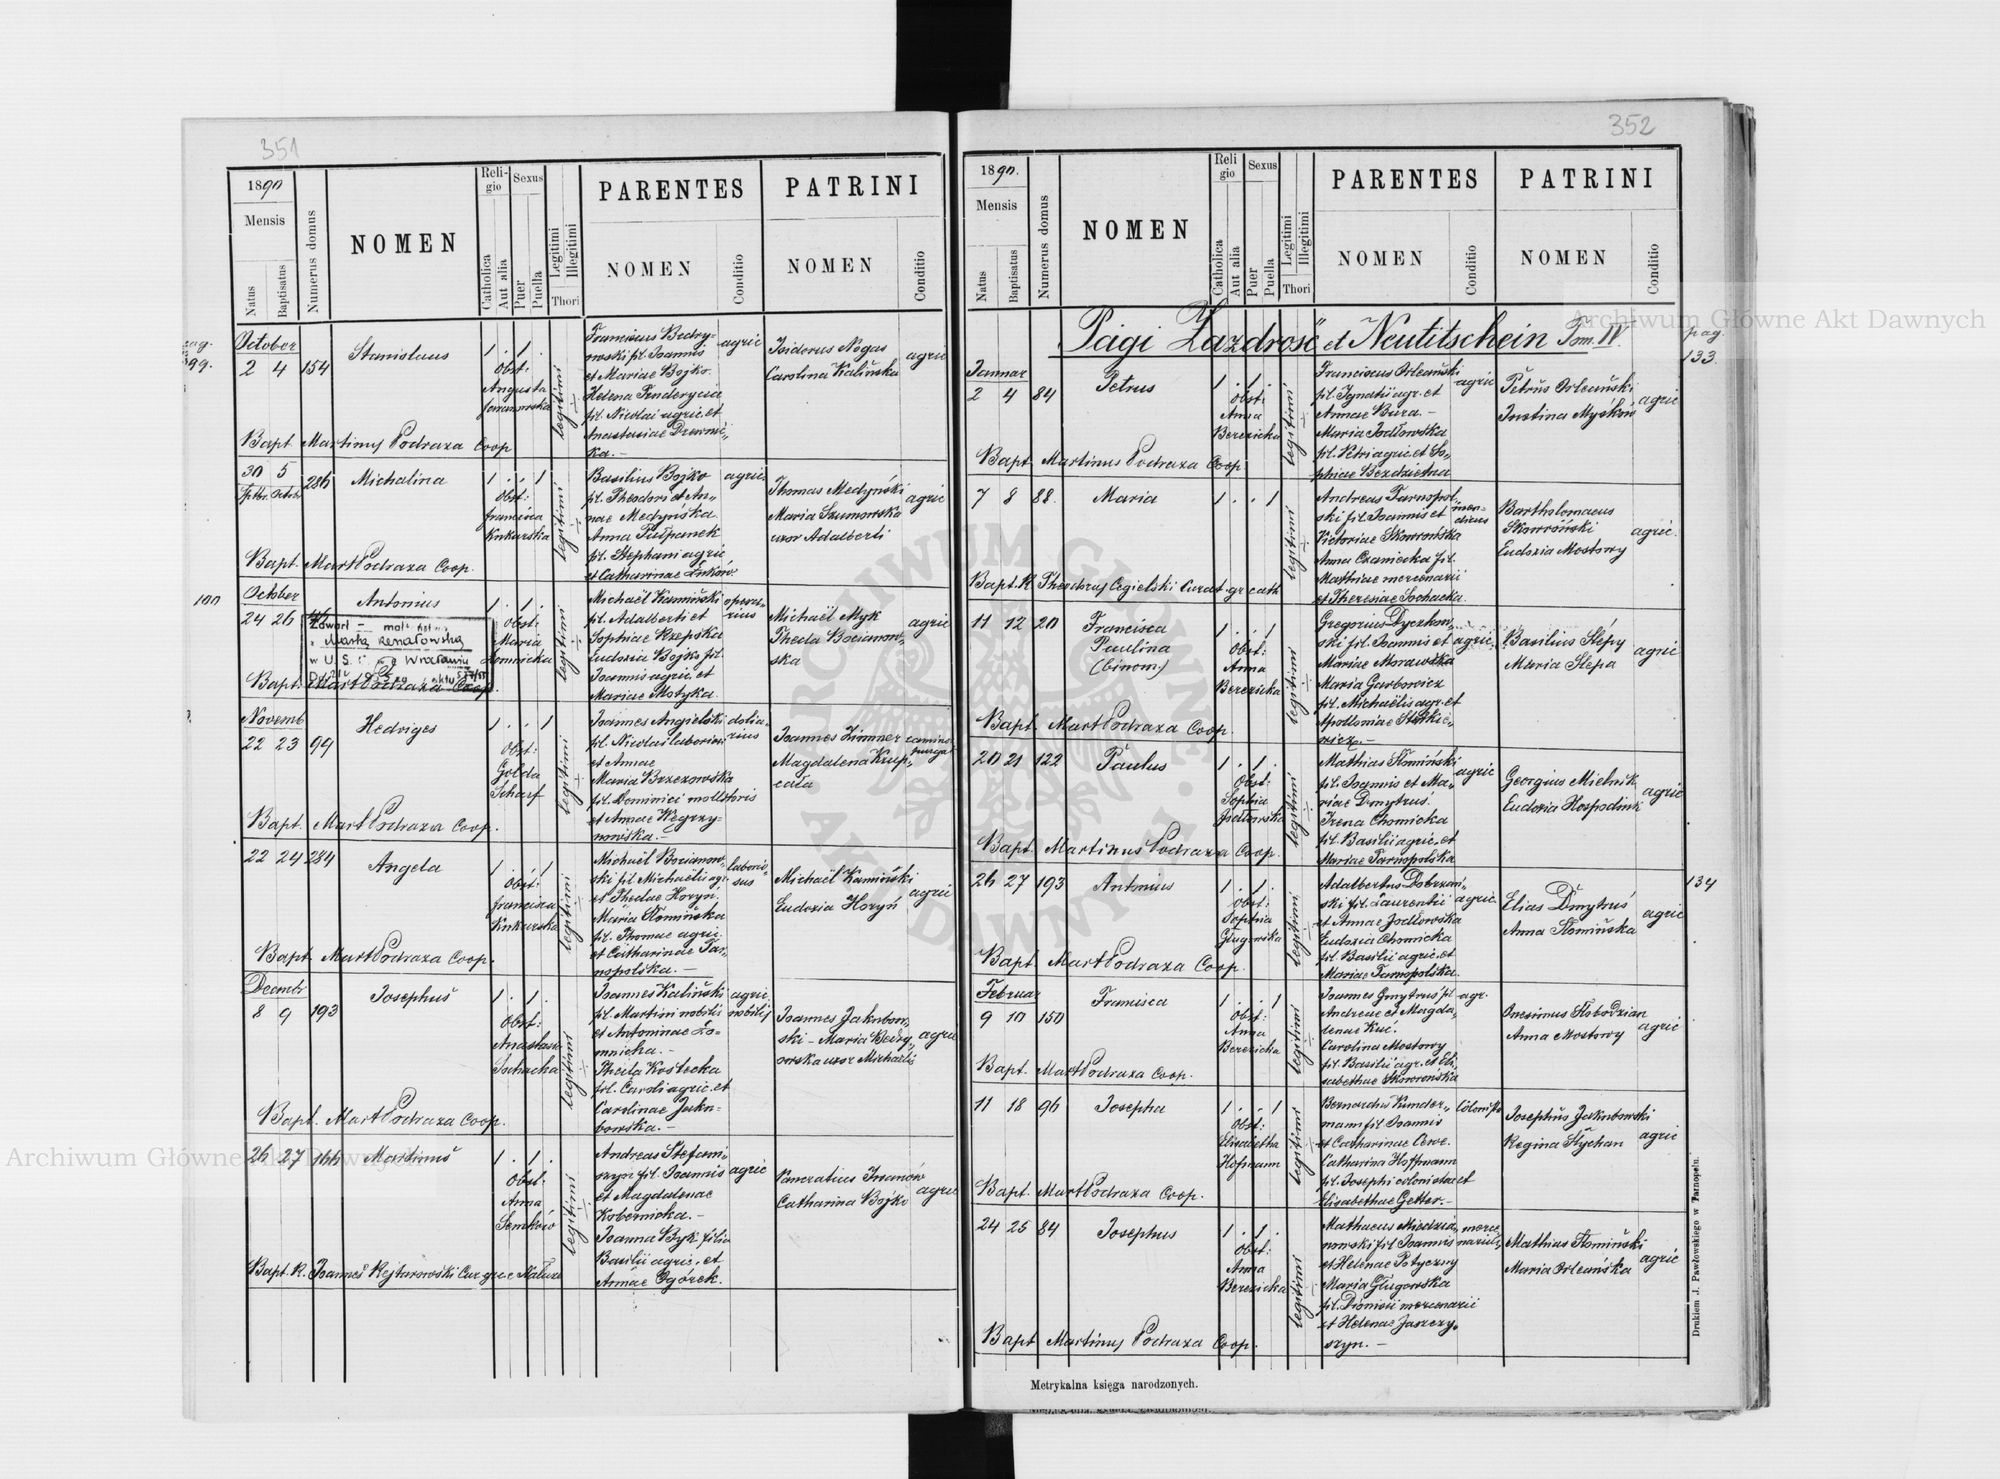 351
1890
Mensis
Natus
Baptisatus
Numerus domus
NOMEN
Religio
Catholica
Aut alia
Sexus
Puer
Puella
Legitimi
Illegitimi
Thori
PARENTES
NOMEN
Conditio
PATRINI
NOMEN
Conditio
pag.
99.
October
2 4 154 Stanislaus 1 . 1 .
Obst:
Augusta
legitimi
Franciscus Bedry-
owski fil. Joannis
et Mariae Bojko.
Helena
fil. Nicolai agric. et
Anastasiae Drewni„
ka.-
agric
Isidorus Nogas
Carolina Kalińska
agric
Bapt. Martinus Podraza Coop
30 5
Septbr. Octob.
286 Michalina 1 . . 1
Obst:
Francisca
Kukurska
legitimi
Basilius Bojko
fil. Theodori et An-
nae Medyńska.
Anna Tulpanek
fil. Stephani agric
et Catharinae Łuków.
agric.
Thomas Medyński
Maria Szumowska
uxor Adalberti
agric
Bapt. Mart Podraza Coop.
100
October
24 26 Antonius 1 . 1 .
Obst:
Maria
Łomnicka
legitimi
Michaël Kamiński
fil. Adalberti et
Sophiae Rzepska
Eudoxia Bojko fil.
Joannis agric et
Mariae Motyka.
opera-
rius
Michaël Myk
Thecla Bocianow-
ska
agric
Zawarł
z Marią Renatowską
w U.S.C. we Wrocławiu
Bapt. Mart Podraza Coop.
Novemb
22 23 99 Hedviges 1 . . 1
Obst:
Golda
Scharf
legitimi
Joannes Angielski
fil. Nicolai laborios
et Annae
Maria Brzezowska
fil. Dominici molitoris
et Annae Węgrzy-
nowska.-
dolia-
rius
Joannes Zimmer
Magdalena Krup„
cała
Bapt. Mart Podraza Coop.
22 24 284 Angela 1 . . 1
Obst:
Francisca
Kukurska
legitimi
Michaël Bocianow-
ski fil Michaëlis agr.
et Theclae Horyń.
Maria Słomińska
fil. Thomae agric.
et Catharinae Tar-
nopolska.-
laborio-
sus
Michaël Kamiński
Eudoxia Horyń
agric
Bapt. Mart Podraza Coop.
Decembr
8 9 193 Josephus 1 . 1 .
Obst:
Anastasia
Sochacka
legitimi
Joannes Kaliński
fil. Martini nobilis
et Antoninae Ło-
mnicka.-
Thecla Kostecka
fil. Caroli agric. et
Carolinae Jaku-
bowska.-
agric.
nobilis
Joannes Jakubow-
ski - Maria Bedry„
owska uxor Michaëlis
agric
Bapt. Mart Podraza Coop.
26 27 166 Martinus 1 . 1 .
Obst:
Anna
Semków
legitimi
Andreas Stefani-
szyn fil. Joannis
et Magdalenae
Kobernicka.-
Joanna Byk filia
Basilii agric. et
Annae Ogórek.
agric
Pancratius Iwanów
Catharina Bojko
agric
Bapt. R. Joannes Rejtarowski Cur gr c
352
1890.
Mensis
Natus
Baptisatus
Numerus domus
NOMEN
Religio
Catholica
Aut alia
Sexus
Puer
Puella
Legitimi
Illegitimi
Thori
PARENTES
NOMEN
Conditio
PATRINI
NOMEN
Conditio
Pagi Zazdrość et Neutitschein Tom. IV.
pag.
133.
Januar
2 4 84 Petrus 1 . 1 .
Obst:
Anna
Berezicka
legitimi
Franciscus Orleański
fil. Ignatii agr. et
Annae Bura.-
Maria Jodłowska
fil. Petri agric. et So-
phiae Bezdzietna
agric
Petrus Orleański
Justina Myśków
agric
Bapt. Martinus Podraza Coop
7 8 88. Maria 1 . . 1
legitimi
Andreas Tarnopol„
ski fil. Joannis et
Victoriae Skowrońska
Anna Czarniecka fil.
Matthiae mercenarii
et Theresiae Sochacka.
men-
dicus
Bartholomaeus
Skowroński
Eudoxia Mostowy
agric.
Bapt. R. Theodorus Cegielski Curat. gr cath
11 12 20 Francisca 1 . . 1
Paulina
(binom)
Obst:
Anna
Berezicka
legitimi
Gregorius Dyczkow-
ski fil. Joannis et
Mariae Morawska
Maria Garbowicz
fil. Michaëlis agr. et
Apolloniae
agric.
Basilius Ślepy
Maria Ślepa
agric
Bapt. Mart Podraza Coop.
20 21 122 Paulus 1 . 1 .
Obst:
Sophia
Jodłowska
legitimi
Mathias Słomiński
fil. Joannis et Ma-
riae Dmytrus.
Irena Chomicka
fil. Basilii agric. et
Mariae Tarnopolska
agric
Georgius Mielnik
Eudoxia Hospodiuk
agric
Bapt. Martinus Podraza Coop.
134
26 27 193 Antonius 1 . 1 .
Obst:
Sophia
Glugowska
legitimi
Adalbertus Dobrzań„
ski fil. Laurentii
et Annae Jodłowska
Eudoxia Chomicka
fil. Basilii agric. et
Mariae Tarnopolska.
agric.
Elias Dmytruś
Anna Słomińska
agric
Bapt. Mart Podraza Coop.
Februar
9 10 150 Francisca 1 . . 1
Obst:
Anna
Berezicka
legitimi
Joannes Gmytrus fil
Andreae et Magda„
lenae Kuc.
Carolina Mostowy
fil. Basilii agr. et Eli
sabethae Skowrońska
agr.
Onesimus Słobodzian
Anna Mostowy
agric
Bapt. Mart Podraza Coop.
11 18 96 Josepha 1 . . 1
Obst:
Elisabetha
Hofmann
legitimi
Bernardus Kunder„
mann fil. Joannis
et Catharinae Cewe.
Catharina Hoffmann
fil. Josephi colonistae et
Elisabethae Getter.-
Colonista
Josephus Jakubowski
Regina Stychan
agric
Bapt. Mart Podraza Coop.
24 25 84 Josephus 1 . 1 .
Obst:
Anna
Berezicka
legitimi
Mathaeus Miedzia„
nowski fil. Joannis
et Helenae Potyczny
Maria Glugowska
fil. Dionisii mercenarii
et Helenae Jaszczy„
szyn.-
merce
narius
Mathias Słomiński
Maria Orleańska
agric
Bapt. Martinus Podraza Coop.
Metrykalna księga narodzonych.
Drukiem J. Pawłowskiego w Tarnopolu.
Archiwum Główne Akt Dawnych
Archiwum Główne Akt Dawnych
ARCHIWUM GŁÓWNE AKT DAWNYCH